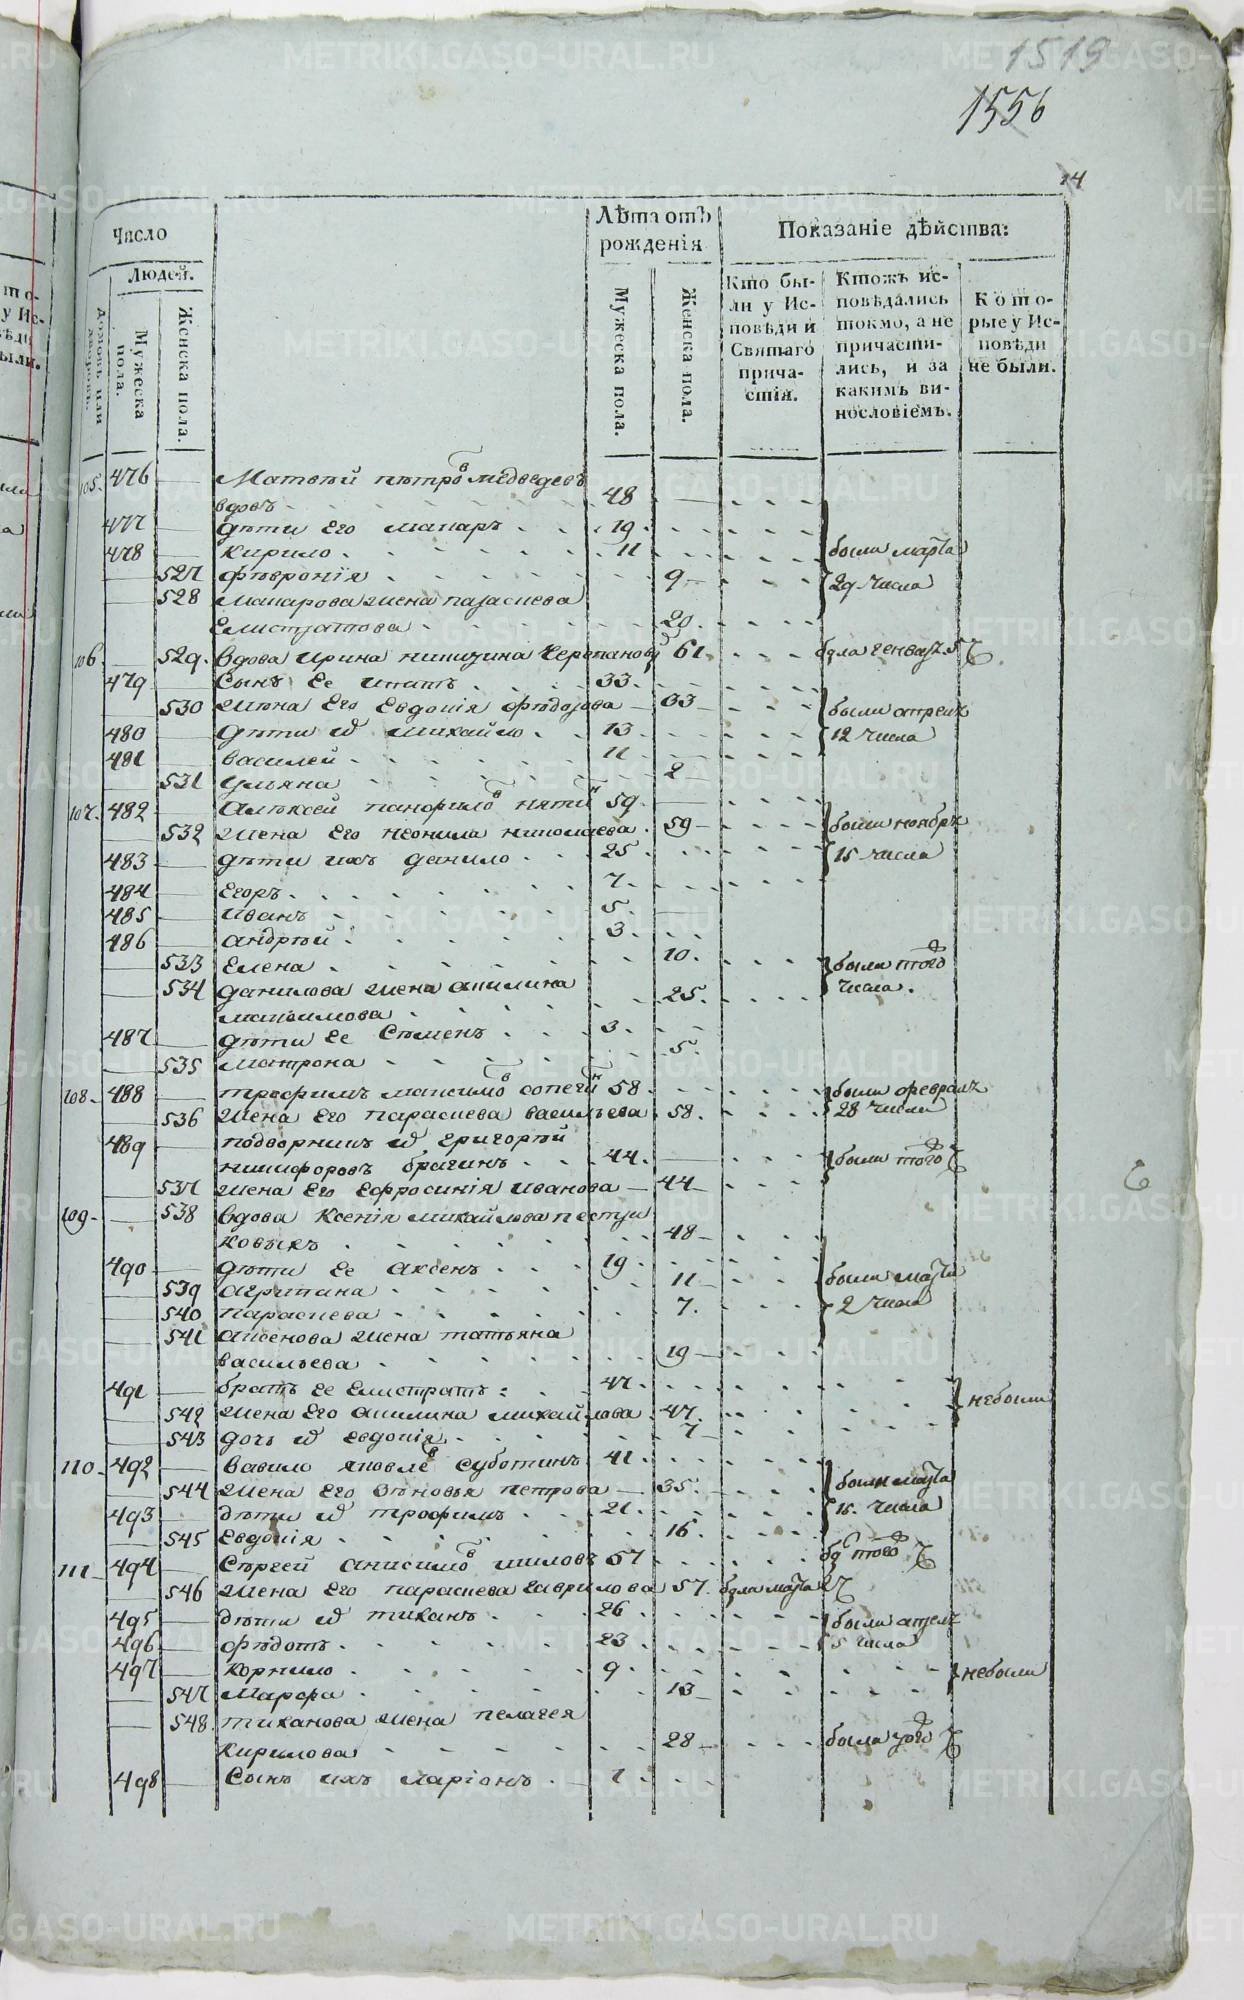 1519
1556
14
Число
Людей.
домовъ или дворовъ.
Мужеска пола.
Женска пола.
Лѣта отъ рожденія
Мужеска пола.
Женска пола.
Показаніе дѣйства:
Кто бы-
ли у Ис-
повѣди и
Святаго
прича-
стія.
Ктожъ ис-
повѣдались
токмо, а не
причасти-
лись, и за
какимъ ви-
нословіемъ.
Кото-
рые у Ис-
повѣди
не были.
105. 476 Матвѣй пѣтровъ медведевъ
вдовъ 48
477 дѣти Его макаръ 19
478 кирило 11 были марта
527 фѣвронія 9 29 числа
528 макарова жена параскева
Елистратова 20
106. 529. вдова Ирина никитина Черепанова 61 была генваря 5 ч
479 сынъ Ее ипатъ 33
530 жена Его Евдокія фѣдорова 33 были апреля
480 дѣти их михайло 13 12 числа
481 василей 11
531 ульяна 2
107. 482 Алѣксей панфиловъ пятин 59
532 жена Его неонила николаева 59 были ноября
483 дѣти ихъ данило 25 15 числа
484 Егоръ 7
485 иванъ 5
486 андрѣй 3
533 Елена 10 были того
534 данилова жена акилина числа.
максимова 25
487 дѣти Ее Сѣменъ 3
535 матрона 5
108. 488 трофимъ максимовъ сопегин 58 были февраля
536 жена Его параскева васильева 58 28 числа
489 подворникъ их григорѣй
никифоровъ брагинъ 44 были того ч
537 жена Его Ефросинія иванова 44
109. 538 вдова Ксенія михайлова пестри
ковыхъ 48
490 дѣти Ее аксенъ 19
539 агрипина 11 были марта
540 параскева 7 2 числа
541 аксенова жена татьяна
васильева 19
491 братъ Ее Елистратъ 47
542 жена Его акилина михайлова 47 небыли
543 дочь их евдокія 7
110. 492 вавило яковлевъ суботинъ 41
544 жена Его зѣновья петрова 35 были марта
493 дѣти их трофимъ 21 15. числа
545 Евдокія 16
111. 494 Сѣргей анисимовъ шиловъ 57 бы того ч
546 жена Его параскева гаврилова 57 была марта ч
495 дѣти их тиханъ 26 были апреля
496 фѣдотъ 23 5 числа
497 Корнило 9 небыли
547 Марфа 13
548. тиханова жена пелагея
кирилова 28 была того ч
498 Сынъ ихъ ларіонъ 1